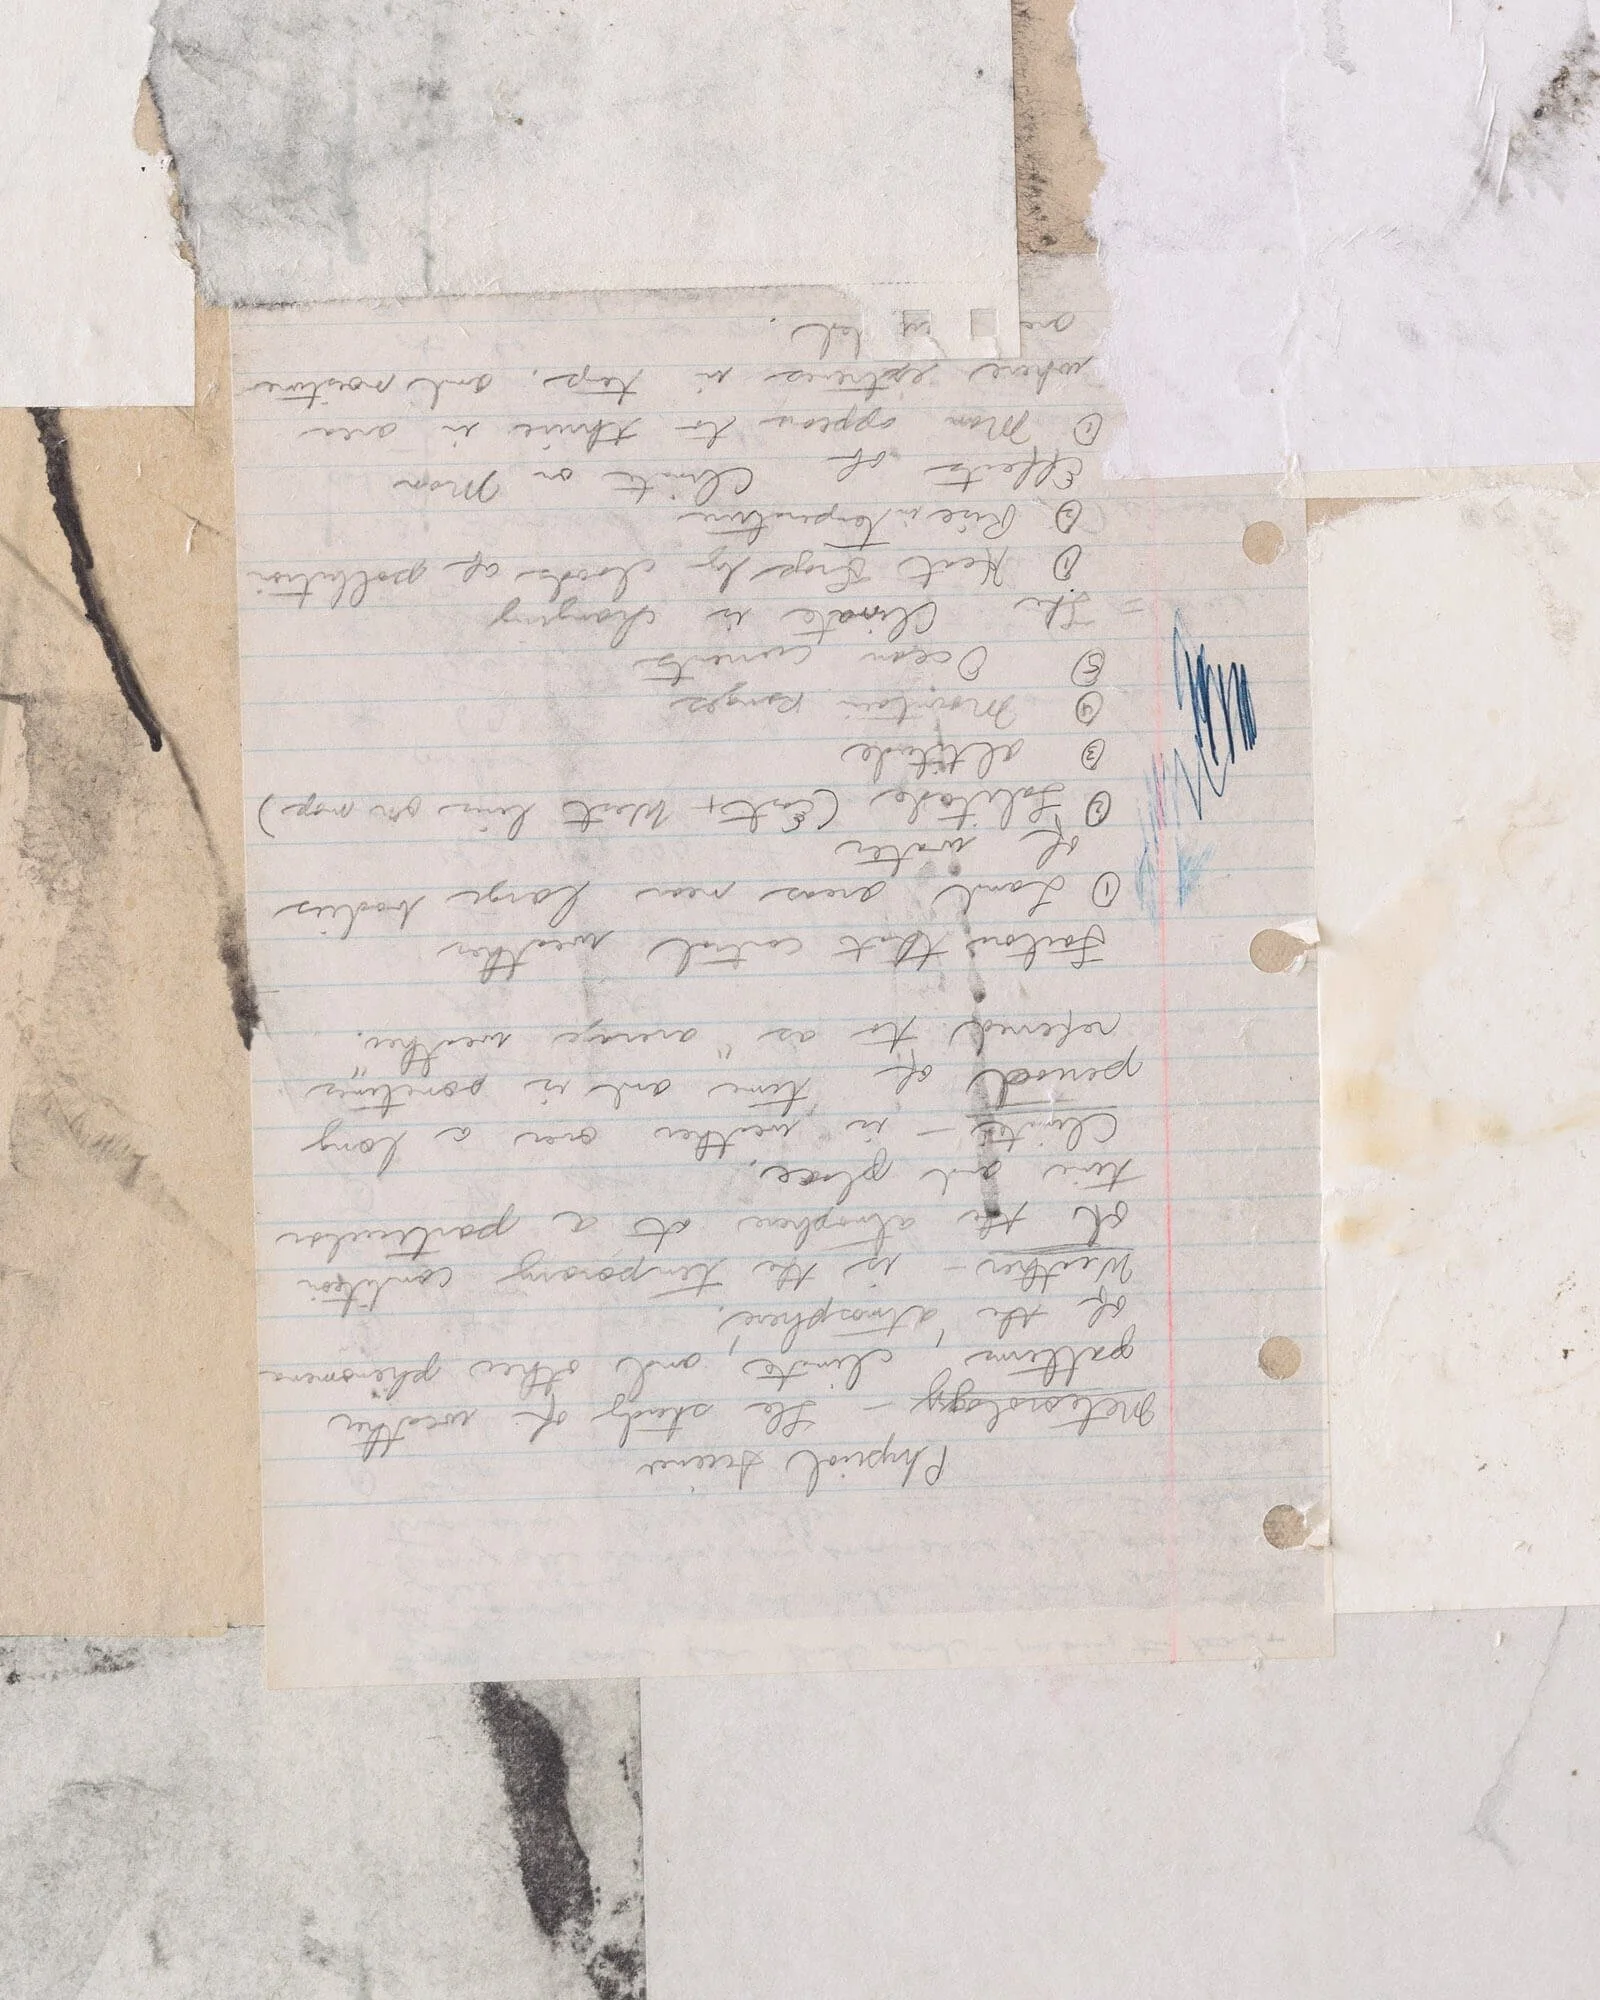 Physical Science
Meteorology - The study of weather
patterns, climate, and other phenomena
of the atmosphere.
Weather - is the temporary condition
of the atmosphere at a particular
time and place.
Climate - is weather over a long
period of time and is sometimes
referred to as "average weather.
Factors that control weather
① Land areas near large bodies
of water
② Latitude (East + West lines on map)
③ altitude
④ Mountain Ranges
⑤ Ocean currents
= The Climate is changing
① Heat Trap by clouds of pollution
② Rise in temperature
Effects of Climate on Man
① Man appears to thrive in area
where extremes in temp. and moisture
are